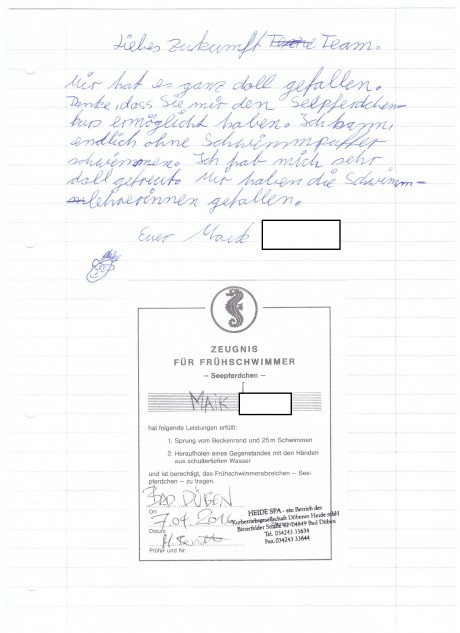 Liebes Zukunft Team.
Mir hat es ganz doll gefallen.
Danke, dass Sie mir den Seepferdchen-
kurs ermöglicht haben. Ich kann,
endlich ohne Schwimmpuffer
schwimmen. Ich hab mich sehr
doll gefreut. Mir haben die Schwimm-
lehrerinnen gefallen.
Euer Maik
ZEUGNIS
FÜR FRÜHSCHWIMMER
– Seepferdchen –
MAiK
hat folgende Leistungen erfüllt:
1. Sprung vom Beckenrand und 25 m Schwimmen
2. Heraufholen eines Gegenstandes mit den Händen
aus schultertiefem Wasser
und ist berechtigt, das Frühschwimmerabzeichen – See-
pferdchen – zu tragen.
BAD DÜBEN
Ort
7.04.2014
Datum
Prüfer und Nr.
HEIDE SPA - ein Betrieb der
Kurbetriebsgesellschaft Dübener Heide mbH
Bitterfelder Straße 42 · 04849 Bad Düben
Tel. 034243 33634
Fax. 034243 33644